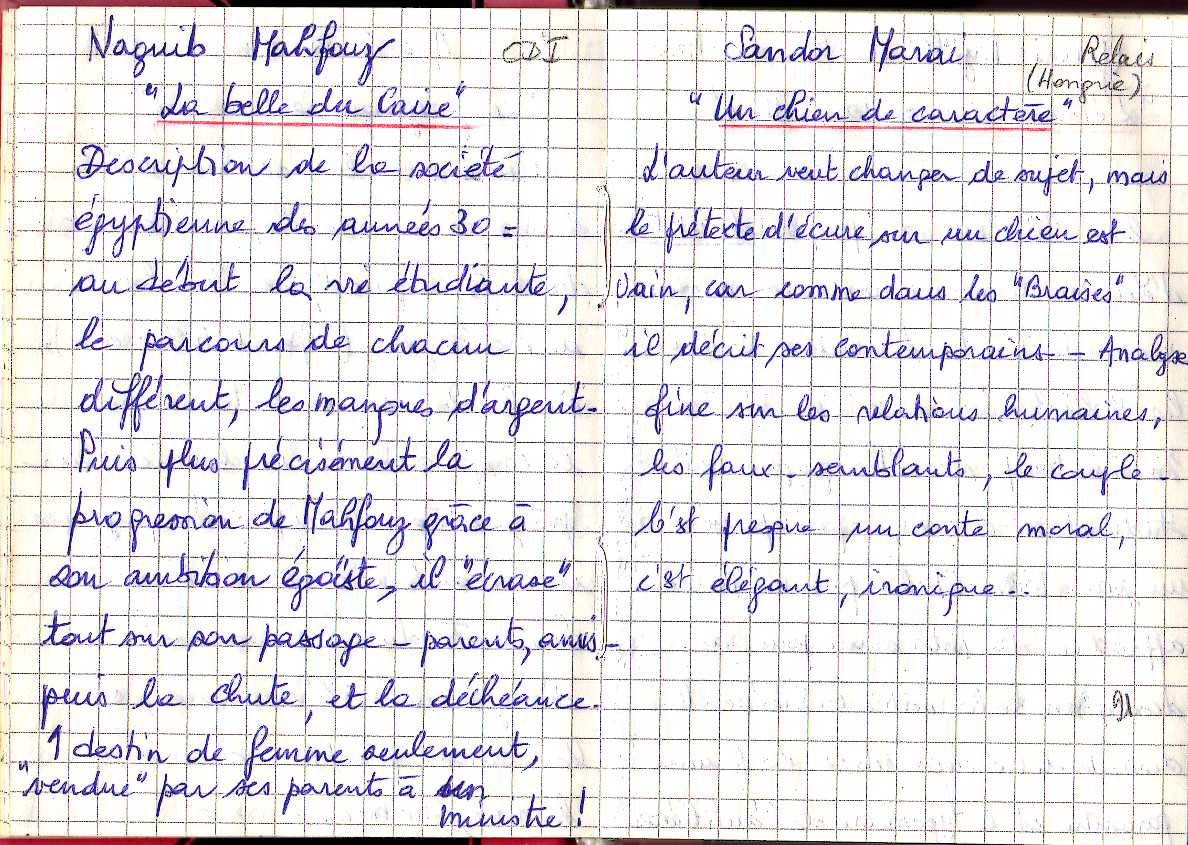 Naguib Mahfouz CDI
"La belle du Caire"
Description de la société
égyptienne des années 30 =
au début la vie étudiante,
le parcours de chacun
différent, les manques d'argent.
Puis plus précisément la
progression de Mahfouz grâce à
son ambition égoïste, il "écrase"
tout sur son passage - parents, amis -
puis la chute, et la déchéance.
1 destin de femme seulement,
"vendue" par ses parents à un
ministre !
Sandor Marai Relais
(Hongrie)
"Un chien de caractère"
L'auteur veut changer de sujet, mais
le prétexte d'écrire sur un chien est
vain, car comme dans les "Braises"
il décrit ses contemporains - Analyse
fine sur les relations humaines,
les faux-semblants, le couple -
C'est presque un conte moral,
c'est élégant, ironique..